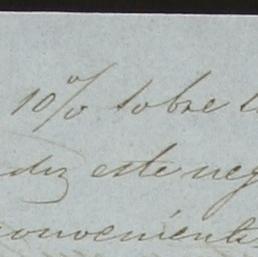 10% sobre
este neg
convenient